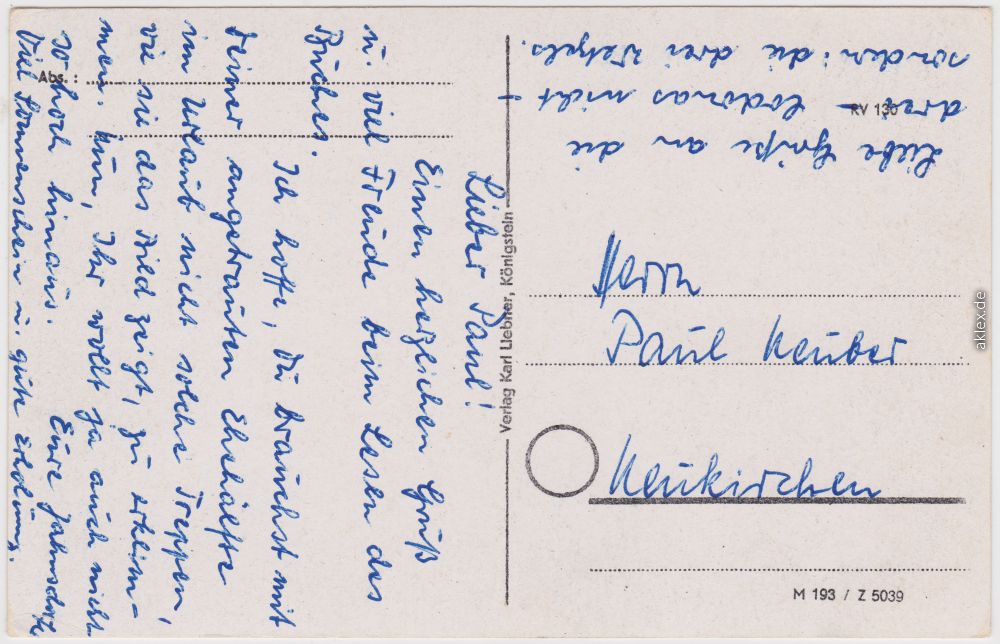 Lieber Paul!
Einen herzlichen Gruß
u. viel Freude beim Lesen des
Buches.
Ich hoffe, Du brauchst mit
Deiner angetrauten Ehehälfte
im Urlaub nicht solche Treppen,
wie sie das Bild zeigt, zu erklim-
men. Nun, Ihr wollt ja auch nicht
so hoch hinaus.
Viel Sonnenschein u. gute Erholung.
Eure Jahnsdorfer
Liebe Grüße an die
drei – nicht –
sondern: die drei Wetzels.
Abs.:
Verlag Karl Liebner, Königstein
RV 130
Herrn
Paul Neuber
Neukirchen
M 193 / Z 5039
aklex.de